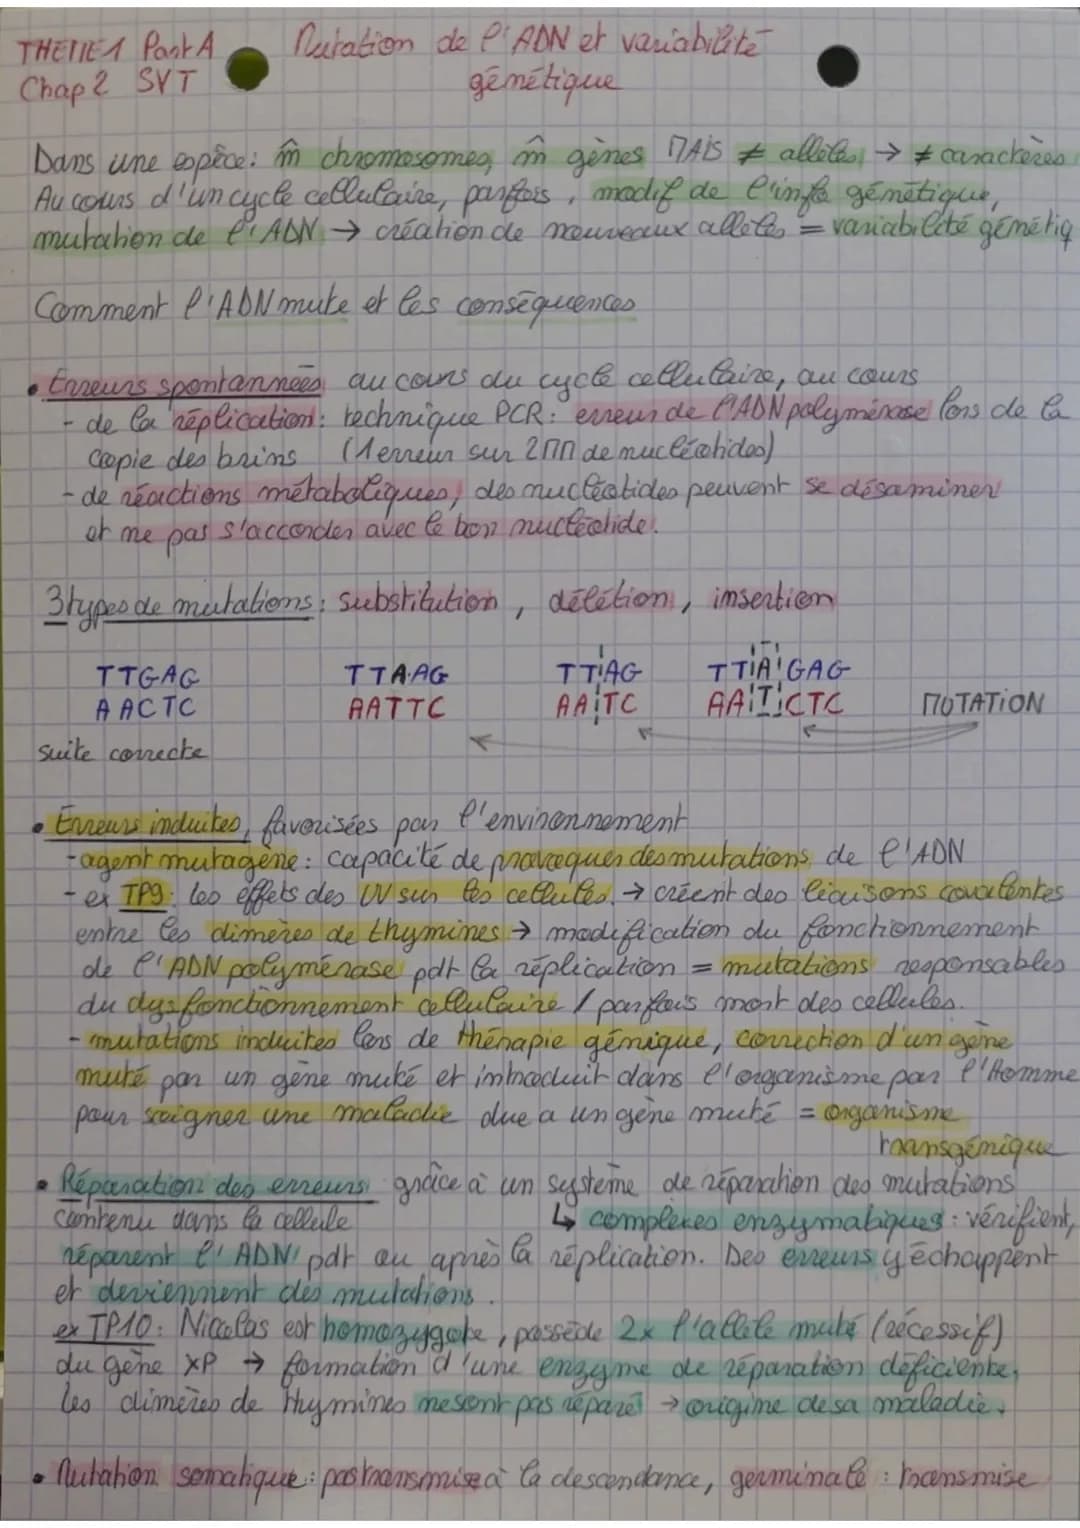 THEME 1 Part A Mutation de l'ADN et variabilité
Chap 2 SVT génétique
Dans une espèce: m̂ chromosomes, m̂ gènes MAIS ≠ allèles, → ≠ caractères
Au cours d'un cycle cellulaire, parfois, modif de l'info génétique,
mutation de l'ADN → création de nouveaux allèles = variabilité génétiq
Comment l'ADN mute et les conséquences
• Erreurs spontannées au cours du cycle cellulaire, au cours
- de la réplication: technique PCR: erreur de l'ADN polymérase lors de la
copie des brins (1 erreur sur 2MM de nucléotides)
- de réactions métaboliques, des nucléotides peuvent se désaminer
et ne pas s'accorder avec le bon nucléotide.
3 types de mutations: substitution, délétion, insertion
TTGAG TTAAG TTAG TTAGAG
AACTC AATTC AATC AATCTC MUTATION
suite correcte
• Erreurs induites, favorisées par l'environnement
- agent mutagène: capacité de provoquer des mutations de l'ADN
- ex TP9: les effets des UV sur les cellules → créent des liaisons covalentes
entre les dimères de thymines → modification du fonctionnement
de l'ADN polymérase pdt la réplication = mutations responsables
du dysfonctionnement cellulaire / parfois mort des cellules.
- mutations induites lors de thérapie génique, correction d'un gène
muté par un gène muté et introduit dans l'organisme par l'Homme
pour soigner une maladie due a un gène muté = organisme
transgénique
• Réparation des erreurs grâce à un système de réparation des mutations
contenu dans la cellule ↳ complexes enzymatiques: vérifient,
réparent l'ADN pdt ou après la réplication. Des erreurs y échappent
et deviennent des mutations.
ex TP10: Nicolas est homozygote, possède 2x l'allèle muté (récessif)
du gène XP → formation d'une enzyme de réparation déficiente,
les dimères de thymines ne sont pas réparé → origine de sa maladie.
• Mutation somatique: pas transmise à la descendance, germinale: transmise